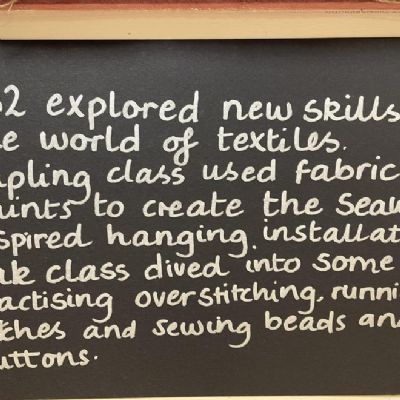 2 explored new skills
e world of textiles.
pling class used fabric
ints to create the seaw
spired hanging installat
k class dived into some
actising overstitching, runni
ches and sewing beads an
uttons.